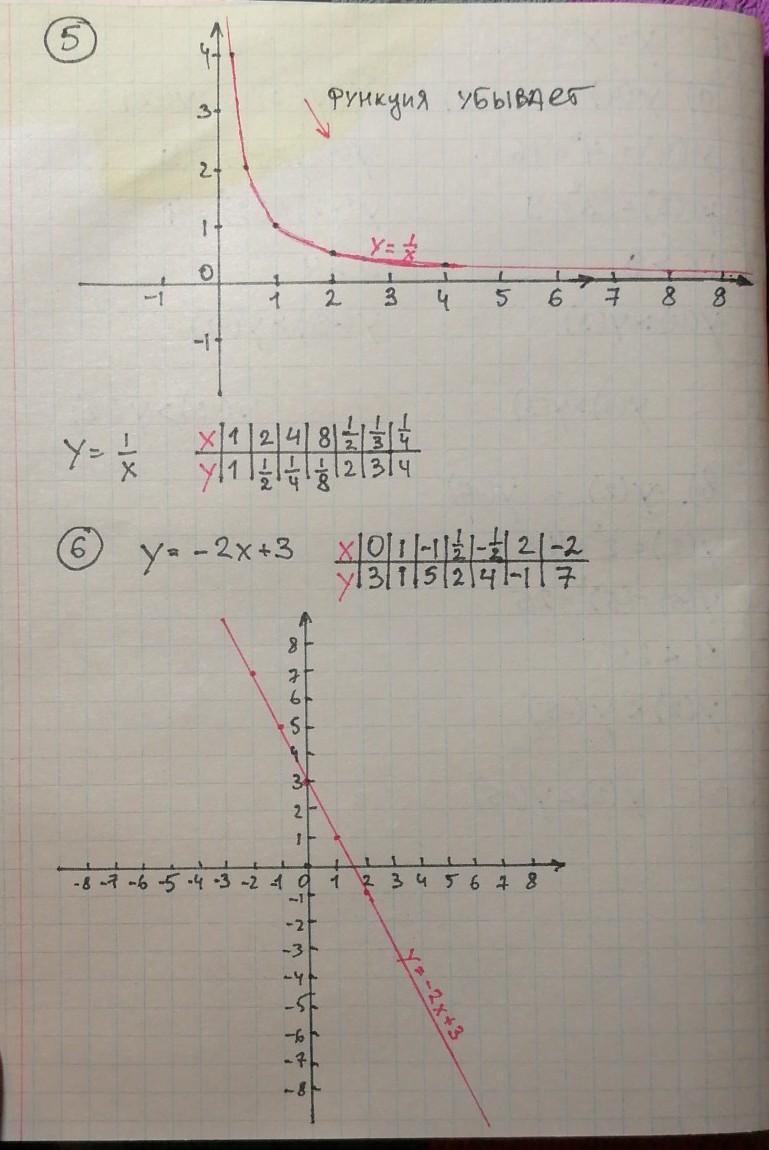 5
4
3
2
1
0
-1
ФУНКЦИЯ УБЫВАЕТ
y = 1/x
-1 1 2 3 4 5 6 7 8 8
y = 1/x
x | 1 | 2 | 4 | 8 | 1/2 | 1/3 | 1/4
y | 1 | 1/2 | 1/4 | 1/8 | 2 | 3 | 4
6 y = -2x+3
x | 0 | 1 | -1 | 1/2 | -1/2 | 2 | -2
y | 3 | 1 | 5 | 2 | 4 | -1 | 7
8
7
6
5
4
3
2
1
-8 -7 -6 -5 -4 -3 -2 -1 0 1 2 3 4 5 6 7 8
-1
-2
-3
-4
-5
-6
-7
-8
y = -2x+3